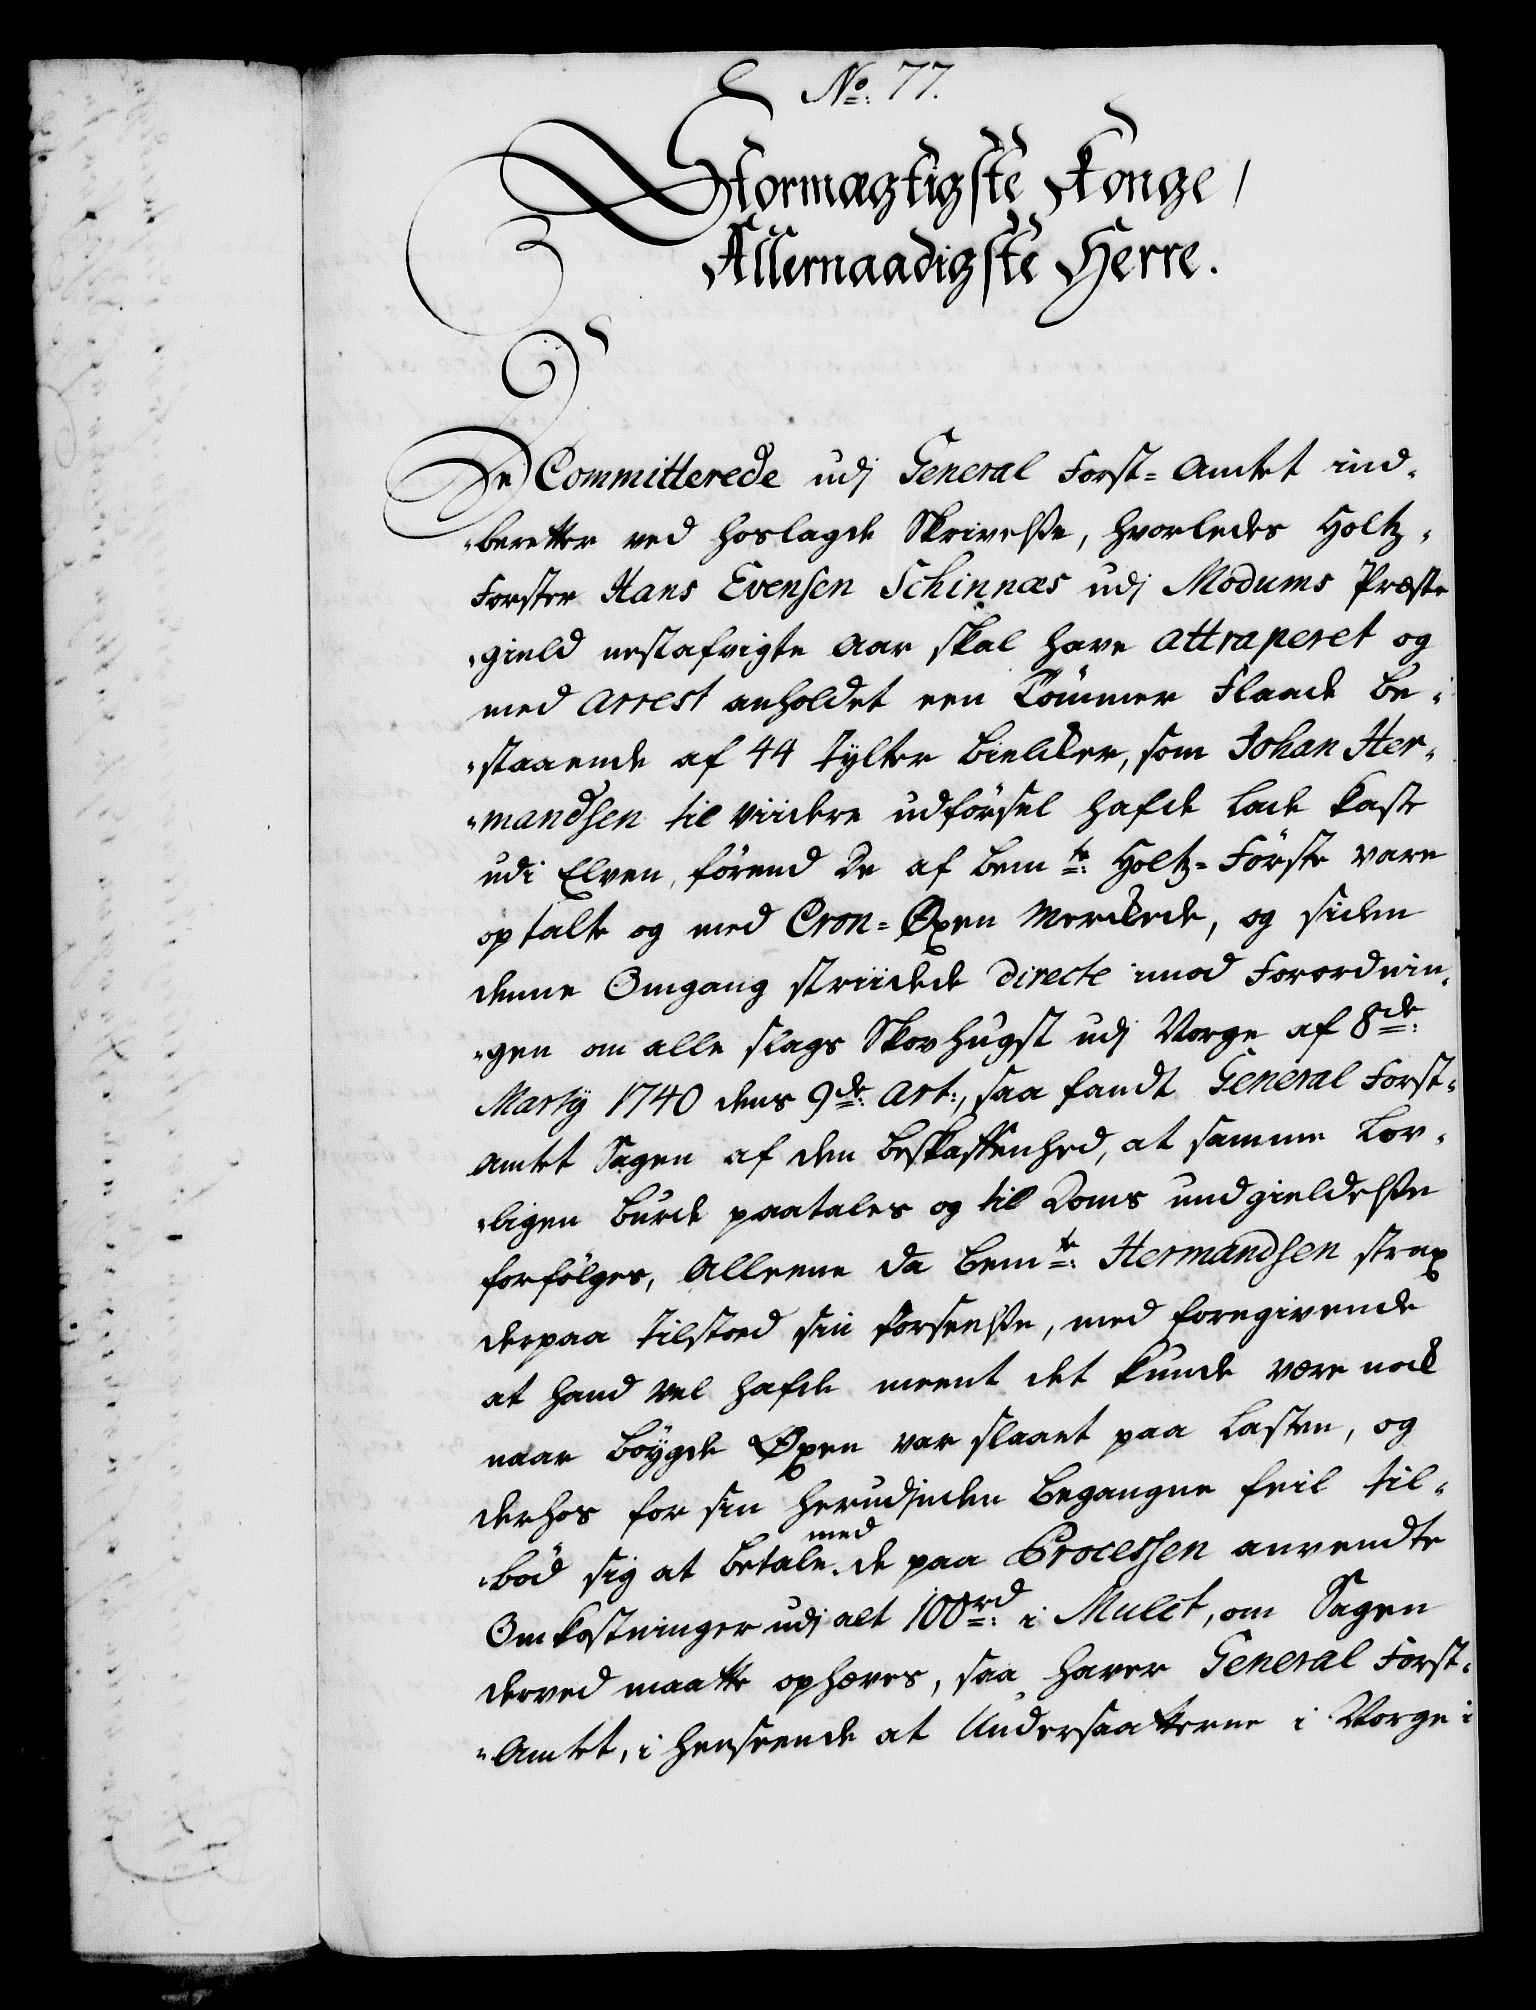 No: 77.
Stormægtigste Konge /
Allernaadigste Herre.
De Committerede udj General Forst=Amtet ind-
-beretter ved hoslagde Skrivelße, hvorledes Holtz-
Forster Hans Evensen Schinnæs udj Modums Præste
-gield nestafvigte Aar skal have attraperet og
med Arrest anholdet een Tömmer Flaade be-
-staaende af 44 Tylter Bielcker, som Johan Her-
-mandsen til viidere udförsel hafde lade kaste
udi Elven, förend De af bemte: Holtz=Förste vare
optalte og med Cron=Øxen Merckede, og siden
denne Omgang striidede directe imod Forordnin-
-gen om alle slags Skovhugst udj Norge af 8de:
Martij 1740 dens 9de: Art:, saa fandt General Forst-
Amtet Sagen af den beskaffenhed, at samme Lov-
-ligen burde paatales og til Doms undgieldelße
forfölges, Alleene da bemte: Hermandsen strax
derpaa tilstoed sin forseelße, med foregivende
at hand vel hafde meent det kunde være nock
naar böygde Øxen var slaaet paa Lasten, og
derhos for sin herudjnden begangne feil til-
-böd sig at betale med de paa Processen anvendte
Omkostninger udj alt 100rd: i Mulct, om Sagen
derved maatte ophæves, saa haver General Forst-
-Amtet, i henseende at Undersaatterne i Norge i